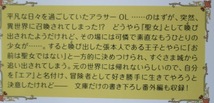 平凡な日々を過ごしていたアラサーOL……のはずが、突然、
異世界に召喚されてしまった!? どうやら「聖女」として喚び
出されたようだけれど、その場には可憐で素直なもうひとり
の少女が。すると喚び出した張本人である王子とやらに「お
前は聖女ではない」と一方的に決めつけられ、すぐさま城から
追い出されてしまう。元の世界には帰れないらしいので、自分
を『エア』と名付け、冒険者として好き勝手に生きてやろうと
決意したけれど―― 文庫だけの書き下ろし番外編も収録！